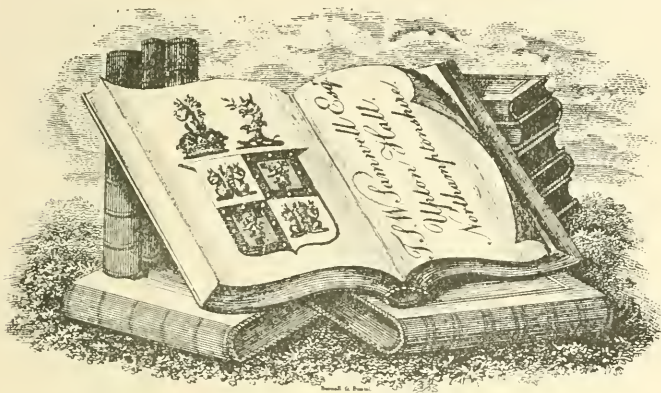 T.S.W. Samwell Esq
Upton Hall.
Northamptonshire